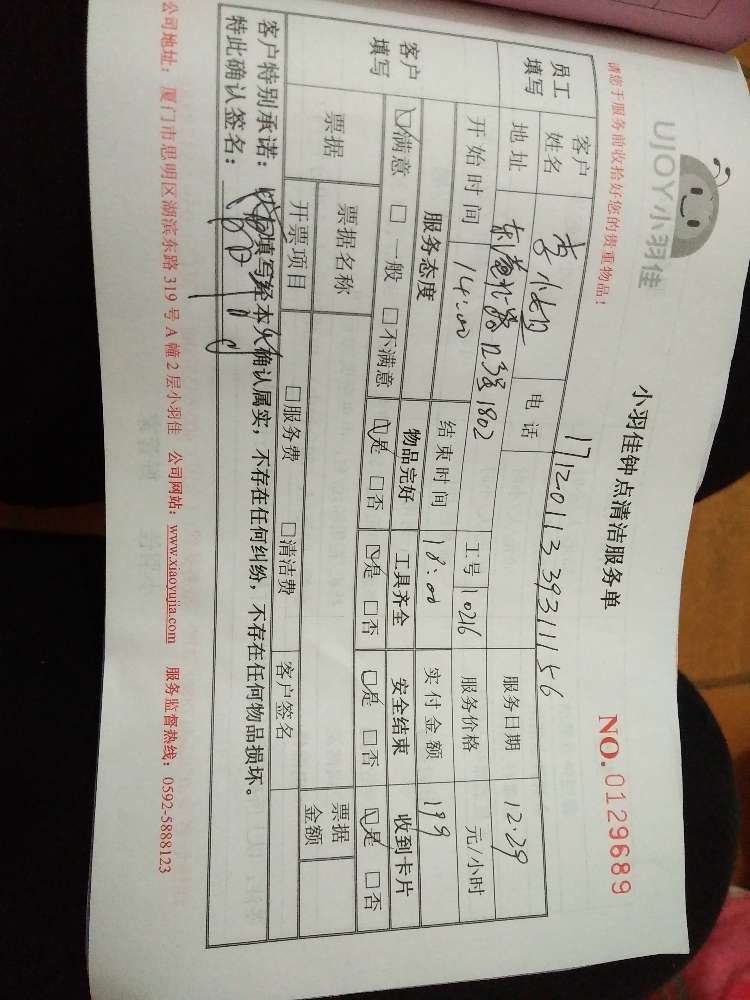 UJOY小羽佳
小羽佳钟点清洁服务单
NO.0129689
请您于服务前收拾好您的贵重物品！
1712011339311156
员工填写
客户姓名 李小姐 电话 服务日期 12.29
地址 123号1802 工号 10216 服务价格 元/小时
开始时间 14:00 结束时间 18:00 实付金额 199
客户填写
服务态度 物品完好 工具齐全 安全结束 收到卡片
☑满意 □一般 □不满意 ☑是 □否 ☑是 □否 ☑是 □否 ☑是 □否
票据 票据名称 票据金额
开票项目 □服务费 □清洁费 客户签名
客户特别承诺：以上填写经本人确认属实，不存在任何纠纷，不存在任何物品损坏。
特此确认签名：
公司地址：厦门市思明区湖滨东路 319 号 A 幢 2 层小羽佳 公司网站：www.xiaoyujia.com 服务监督热线：0592-5888123